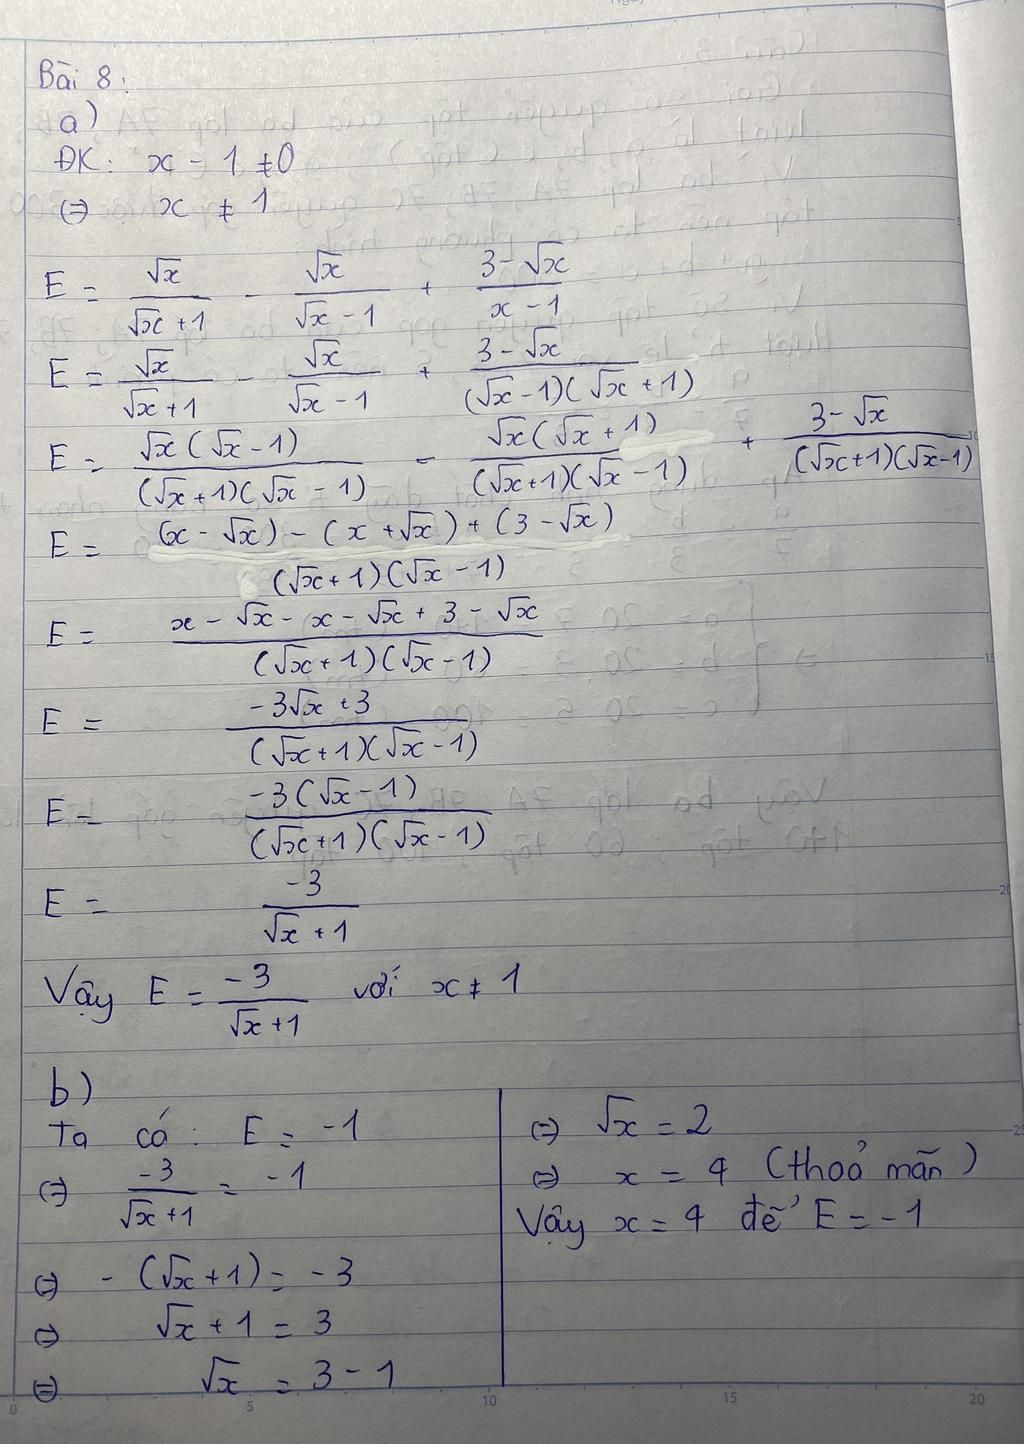 Bài 8:
a)
ĐK: x - 1 ≠ 0
⇔ x ≠ 1
E = √x/(√x + 1) - √x/(√x - 1) + (3 - √x)/(x - 1)
E = √x/(√x + 1) - √x/(√x - 1) + (3 - √x)/((√x - 1)(√x + 1))
E = √x(√x - 1)/((√x + 1)(√x - 1)) - √x(√x + 1)/((√x + 1)(√x - 1)) + (3 - √x)/((√x + 1)(√x - 1))
E = ((x - √x) - (x + √x) + (3 - √x))/((√x + 1)(√x - 1))
E = (x - √x - x - √x + 3 - √x)/((√x + 1)(√x - 1))
E = (-3√x + 3)/((√x + 1)(√x - 1))
E = -3(√x - 1)/((√x + 1)(√x - 1))
E = -3/(√x + 1)
Vậy E = -3/(√x + 1) với x ≠ 1
b)
Ta có: E = -1
⇔ -3/(√x + 1) = -1
⇔ - (√x + 1) = -3
⇔ √x + 1 = 3
⇔ √x = 3 - 1
⇔ √x = 2
⇔ x = 4 (thoả mãn)
Vậy x = 4 để E = -1
0 5 10 15 20